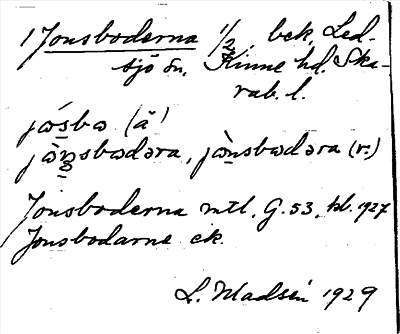 1 Jonsboderna 1/2, bek, Led-
sjö sn, Kinne hd. Ska-
rab. l.
jɷ́sbɷ (ä́)
jɷ̀ṉsbɷdəra, jɷ̀nsbɷdəra (r.)
Jonsboderna mtl, G. 53, kl. 1927
Jonsbodarne ek.
L. Madsén 1929